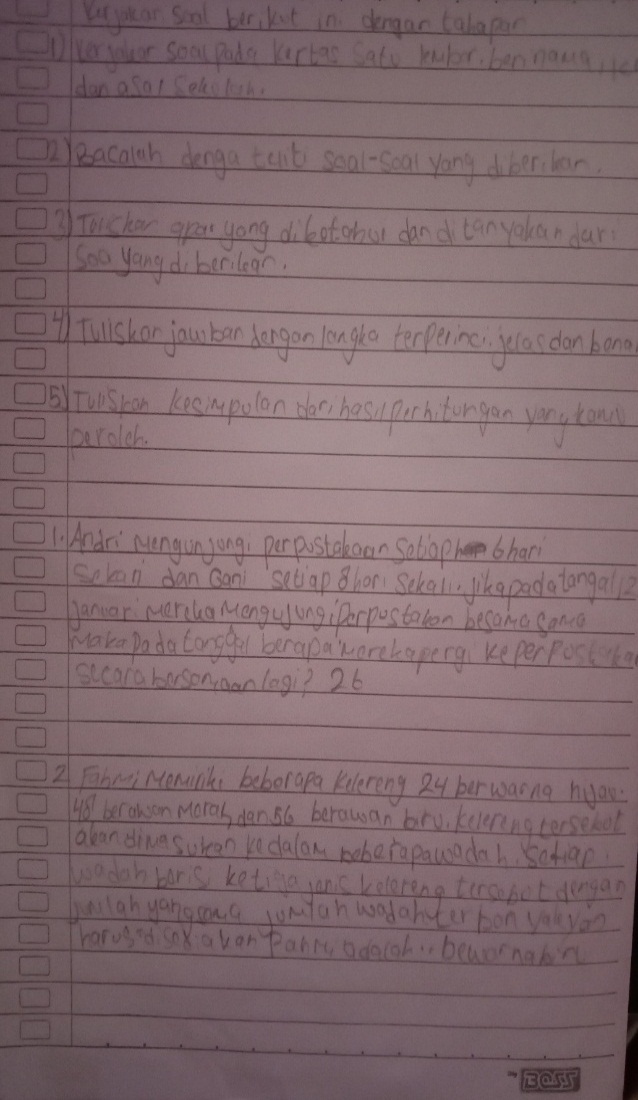 Kerjakar Soal berikut ini dengan tahapan
1) Kerjakar Soal pada kertas Satu lembor. beri nama,
dan asal Sekolah.
2) Bacalah denga teliti soal-soal yang diberikan.
3) Toliskan apa yang diketahui dan ditanyakan dari
Soa yang diberikan.
4) Tuliskan jawaban dengan langka terperinci, jelas dan bena
5) Tuliskan kesimpulan dari hasil perhitungan yang kamu
peroleh.
1. Andri Mengunjungi perpustakaan Setiap 6 hari
Sekali dan Gani setiap 8 hari Sekali. jika pada tanggal 12
januari Mereka Mengujungi Perpustakon besama sama
Maka pada tanggal berapa Mereka pergi ke perpustaka
secara bersamaan lagi? 26
2 Fahmi Memiliki beberapa kelereng 24 berwarna hijau.
48 berawan Merah, dan 56 berawan biru. kelereng tersebut
akan dimasukan kedalam beberapa wadah. Setiap
wadah beris ketiga jenis kelereng tersebut dengan
jumlah yang sama jumlah wadah terbanyak yan
harus disediakan Fahmi adalah .. bewarna biru
BOSS